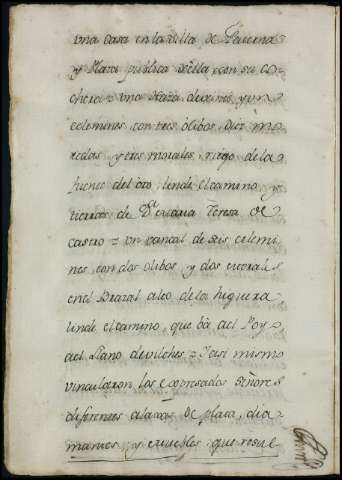 una casa en la villa de Paterna
y Plaza publica de ella, con su co
chera = una Haza de seis y un
celemines con tres olibos, diez mo
redas y tres morales, riego de la
fuente del oro, linde el camino, y
tierras de Dª Maria Teresa de
castro = un vancal de seis celemi
nes con dos olibos, y dos morales
en el Brazal alto de la higuera
linde el camino, que bà del Poyo
al Llano de vilches = Y asi mismo
vincularon los expresados Señores
diferentes alaxas de plata, dia
mantes y muebles que resul